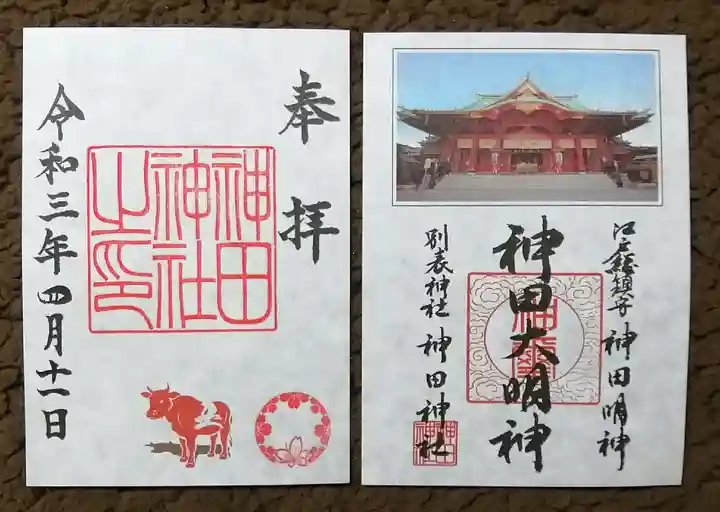 奉拝
神田
神社
之印
令和三年四月十一日
江戸総鎮守 神田明神
神田大明神
別表神社 神田神社
神田
神社